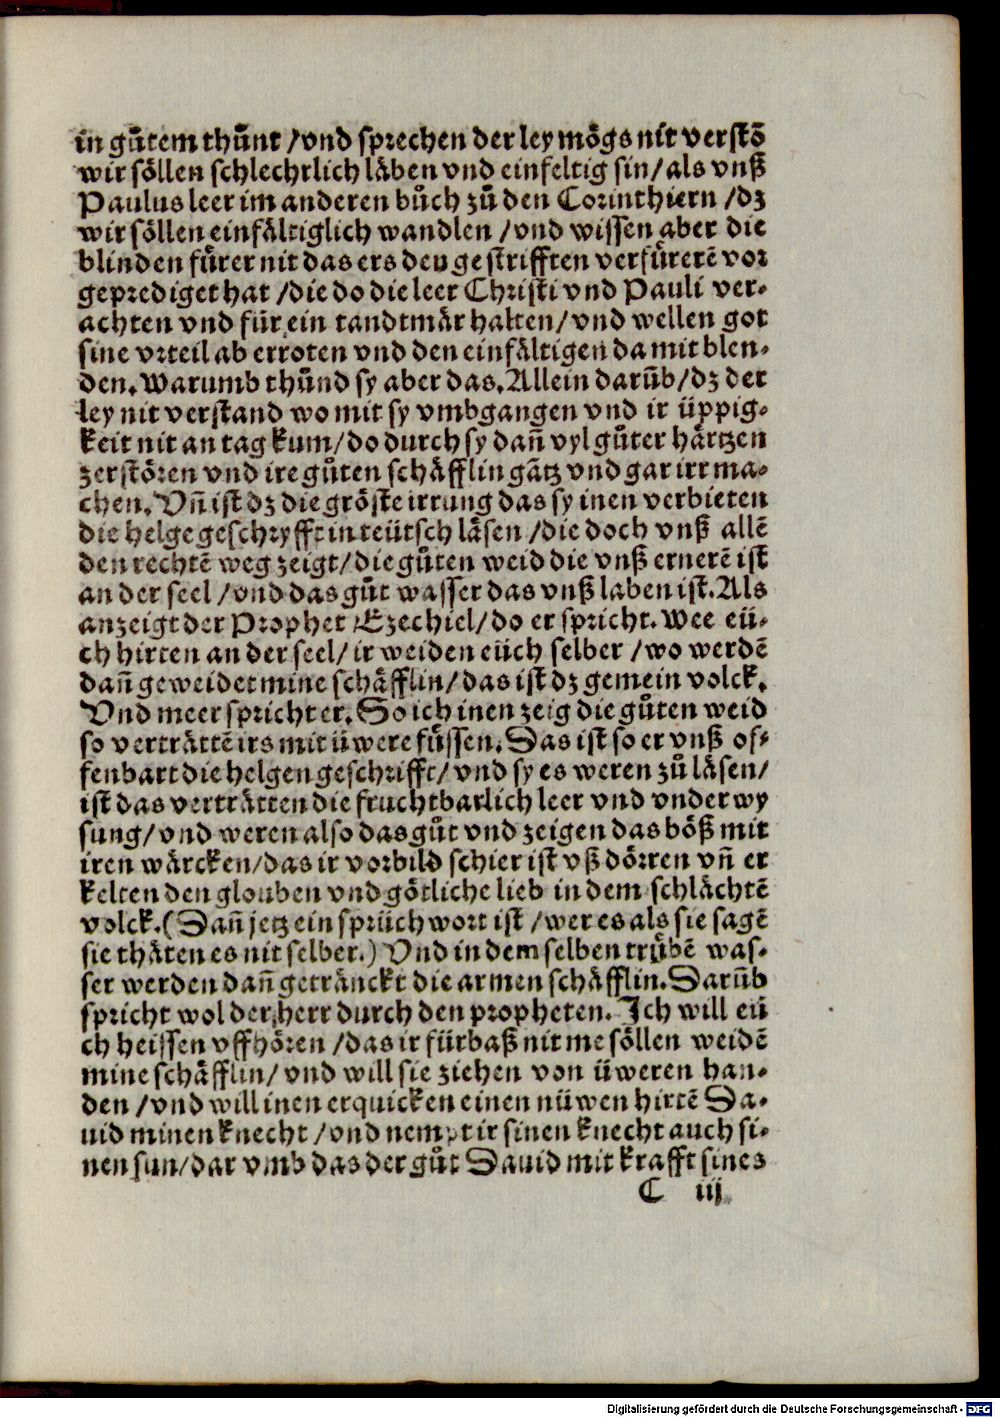 in gůtem thůnt /vnd sprechen der ley mögs nit verstō
wir söllen schlechrlich läben vnd einfeltig sin/als vnß
Paulus leer im anderen bůch zů den Corinthiern /dz
wir söllen einfältiglich wandlen /vnd wissen aber die
blinden fürer nit das ers den gestrifften verfürerē vor
geprediget hat /die do die leer Christi vnd Pauli ver-
achten vnd für ein tandtmär halten/vnd wellen got
sine vrteil ab erroten vnd den einfältigen da mit blen-
den. Warumb thůnd sy aber das. Allein darūb/dz der
ley nit verstand wo mit sy vmbgangen vnd ir üppig-
keit nit an tag kum/do durch sy dañ vyl gůter härtzen
zerstören vnd ire gůten schäfflin gātz vnd gar irr ma-
chen. Vñ ist dz die gröste irrung das sy inen verbieten
die helge geschryfft in teütsch läsen /die doch vnß allē
den rechtē weg zeigt/die gůten weid die vnß ernerē ist
an der seel /vnd das gůt wasser das vnß laben ist. Als
anzeigt der Prophet Ezechiel/do er spricht. Wee eü-
ch hirten an der seel/ir weiden eüch selber /wo werdē
dañ geweidet mine schäfflin/das ist dz gemein volck.
Vnd meer spricht er. So ich inen zeig die gůten weid
so verträttē irs mit üwere füssen. Das ist so er vnß of-
fenbart die helgen geschrifft/vnd sy es weren zů läsen/
ist das verträtten die fruchtbarlich leer vnd vnder wy
sung/vnd weren also das gůt vnd zeigen das böß mit
iren wärcken/das ir vorbild schier ist vß dörren vñ er
kelten den glouben vnd götliche lieb in dem schlächtē
volck. (Dañ jetz ein sprüch wort ist /wer es als sie sagē
sie thäten es nit selber.) Vnd in dem selben trübē was-
ser werden dañ getränckt die armen schäfflin. Darūb
spricht wol der herr durch den propheten. Ich will eü
ch heissen vffhören /das ir fürbaß nit me söllen weidē
mine schäfflin/vnd will sie ziehen von üweren han-
den /vnd will inen erquicken einen nüwen hirtē Da-
uid minen knecht /vnd nempt ir sinen knecht auch si-
nen sun/dar vmb das der gůt Dauid mit krafft sines
C iij
Digitalisierung gefördert durch die Deutsche Forschungsgemeinschaft - DFG